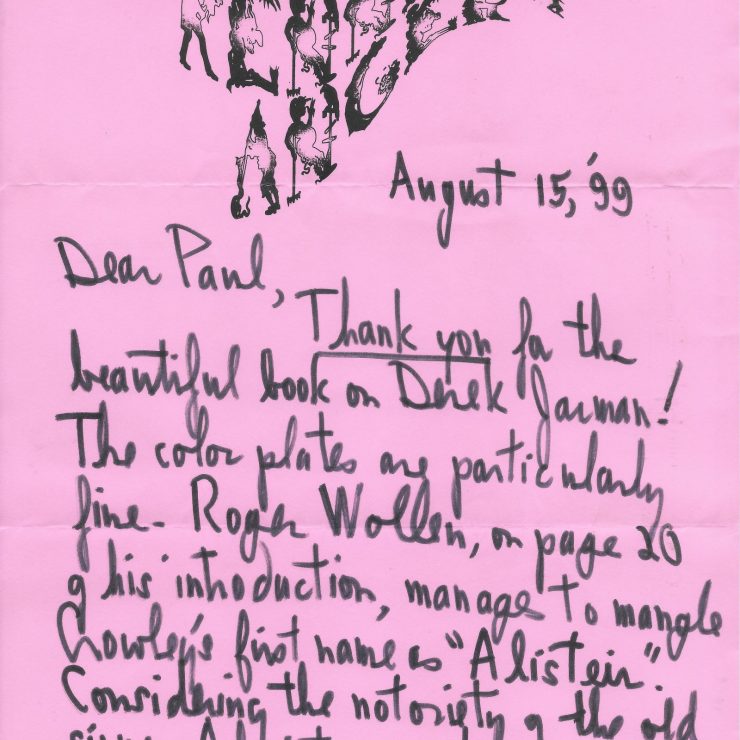 August 15, '99
Dear Paul,
Thank you for the
beautiful book on Derek Jarman!
The color plates are particularly
fine. Roger Wollen, on page 20
of his introduction, manages to mangle
Crowley's first name as "Alisteir".
Considering the notoriety of the old